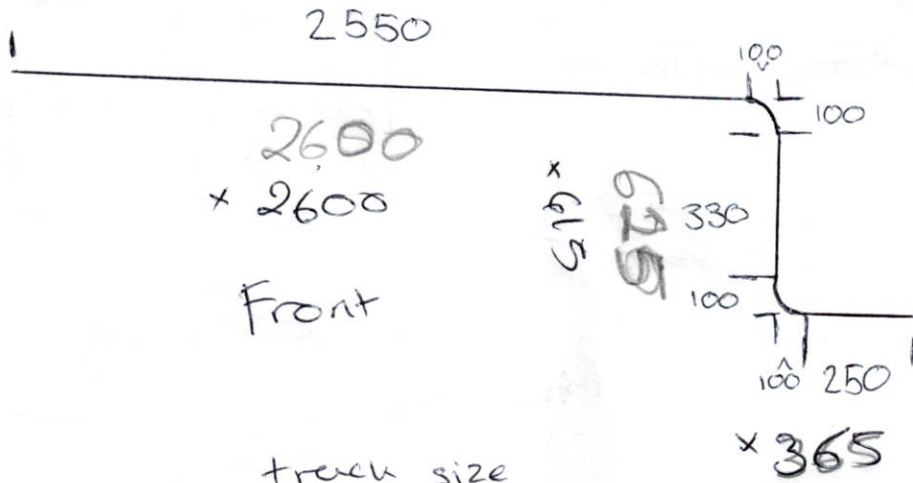 2550
100
100
2600
× 2600
× 615
625
330
Front
100
100
250
× 365
track size